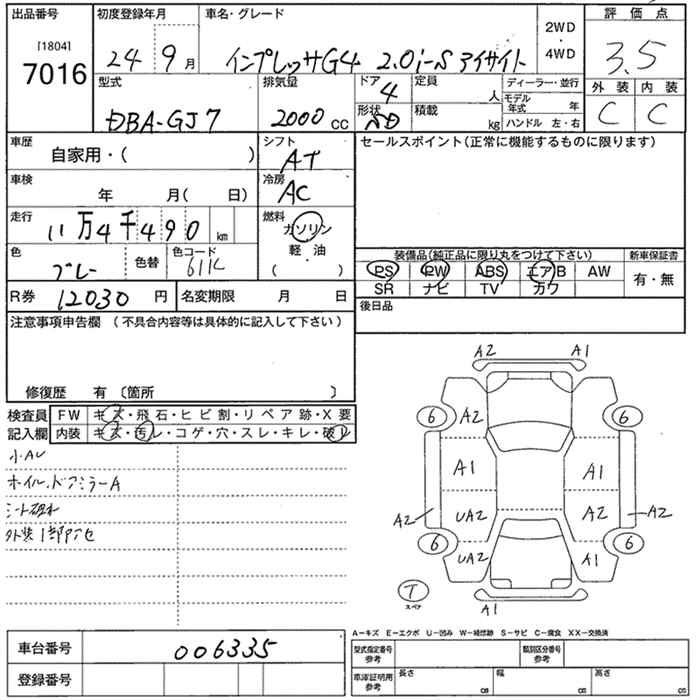 出品番号
[1804]
7016
初度登録年月
24 9月
車名・グレード
インプレッサG4 2.0i-S アイサイト
2WD
・
4WD
評価点
3.5
外装 内装
C C
型式
DBA-GJ7
排気量
2000 CC
ドア
4
形状
定員
人
積載
kg
ディーラー・並行
モデル年式 年
ハンドル 左・右
車歴
自家用・( )
シフト
AT
車検
年 月( 日)
冷房
AC
走行
11万4千490 km
燃料
ガソリン
軽・油
( ・ )
色
グレー
色替
色コード
61K
R券 12030 円
名変期限 月 日
セールスポイント(正常に機能するものに限ります)
装備品(純正品に限り丸をつけて下さい)
PS PW ABS エアB AW
SR ナビ TV カワ
新車保証書
有・無
後日品
注意事項申告欄 (不具合内容等は具体的に記入して下さい)
修復歴 有〔箇所 〕
検査員
記入欄
FW キズ・飛石・ヒビ割・リペア跡・X要
内装 キズ・汚レ・コゲ・穴・スレ・キレ・破レ
小AU
ホイル.ドアミラーA
シート破れ
外装1部アセ
A2 A1
6 A2 6
A1 A1
A2 UA2 A2 A2
6 UA2 A1 6
T
スペア
A1
A-キズ E-エクボ U-凹み W-補修跡 S-サビ C-腐食 XX-交換済
車台番号 006335
登録番号
型式指定番号
参考
類別区分番号
参考
車庫証明用
参考
長さ cm
幅 cm
高さ cm